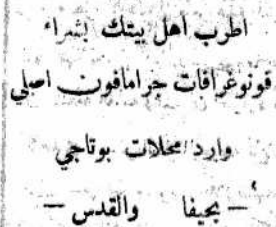 اطرب اهل بيتك بشراء
فونوغرافات جرامافون اصلي
وارد محلات بوتاجي
— بحيفا والقدس —